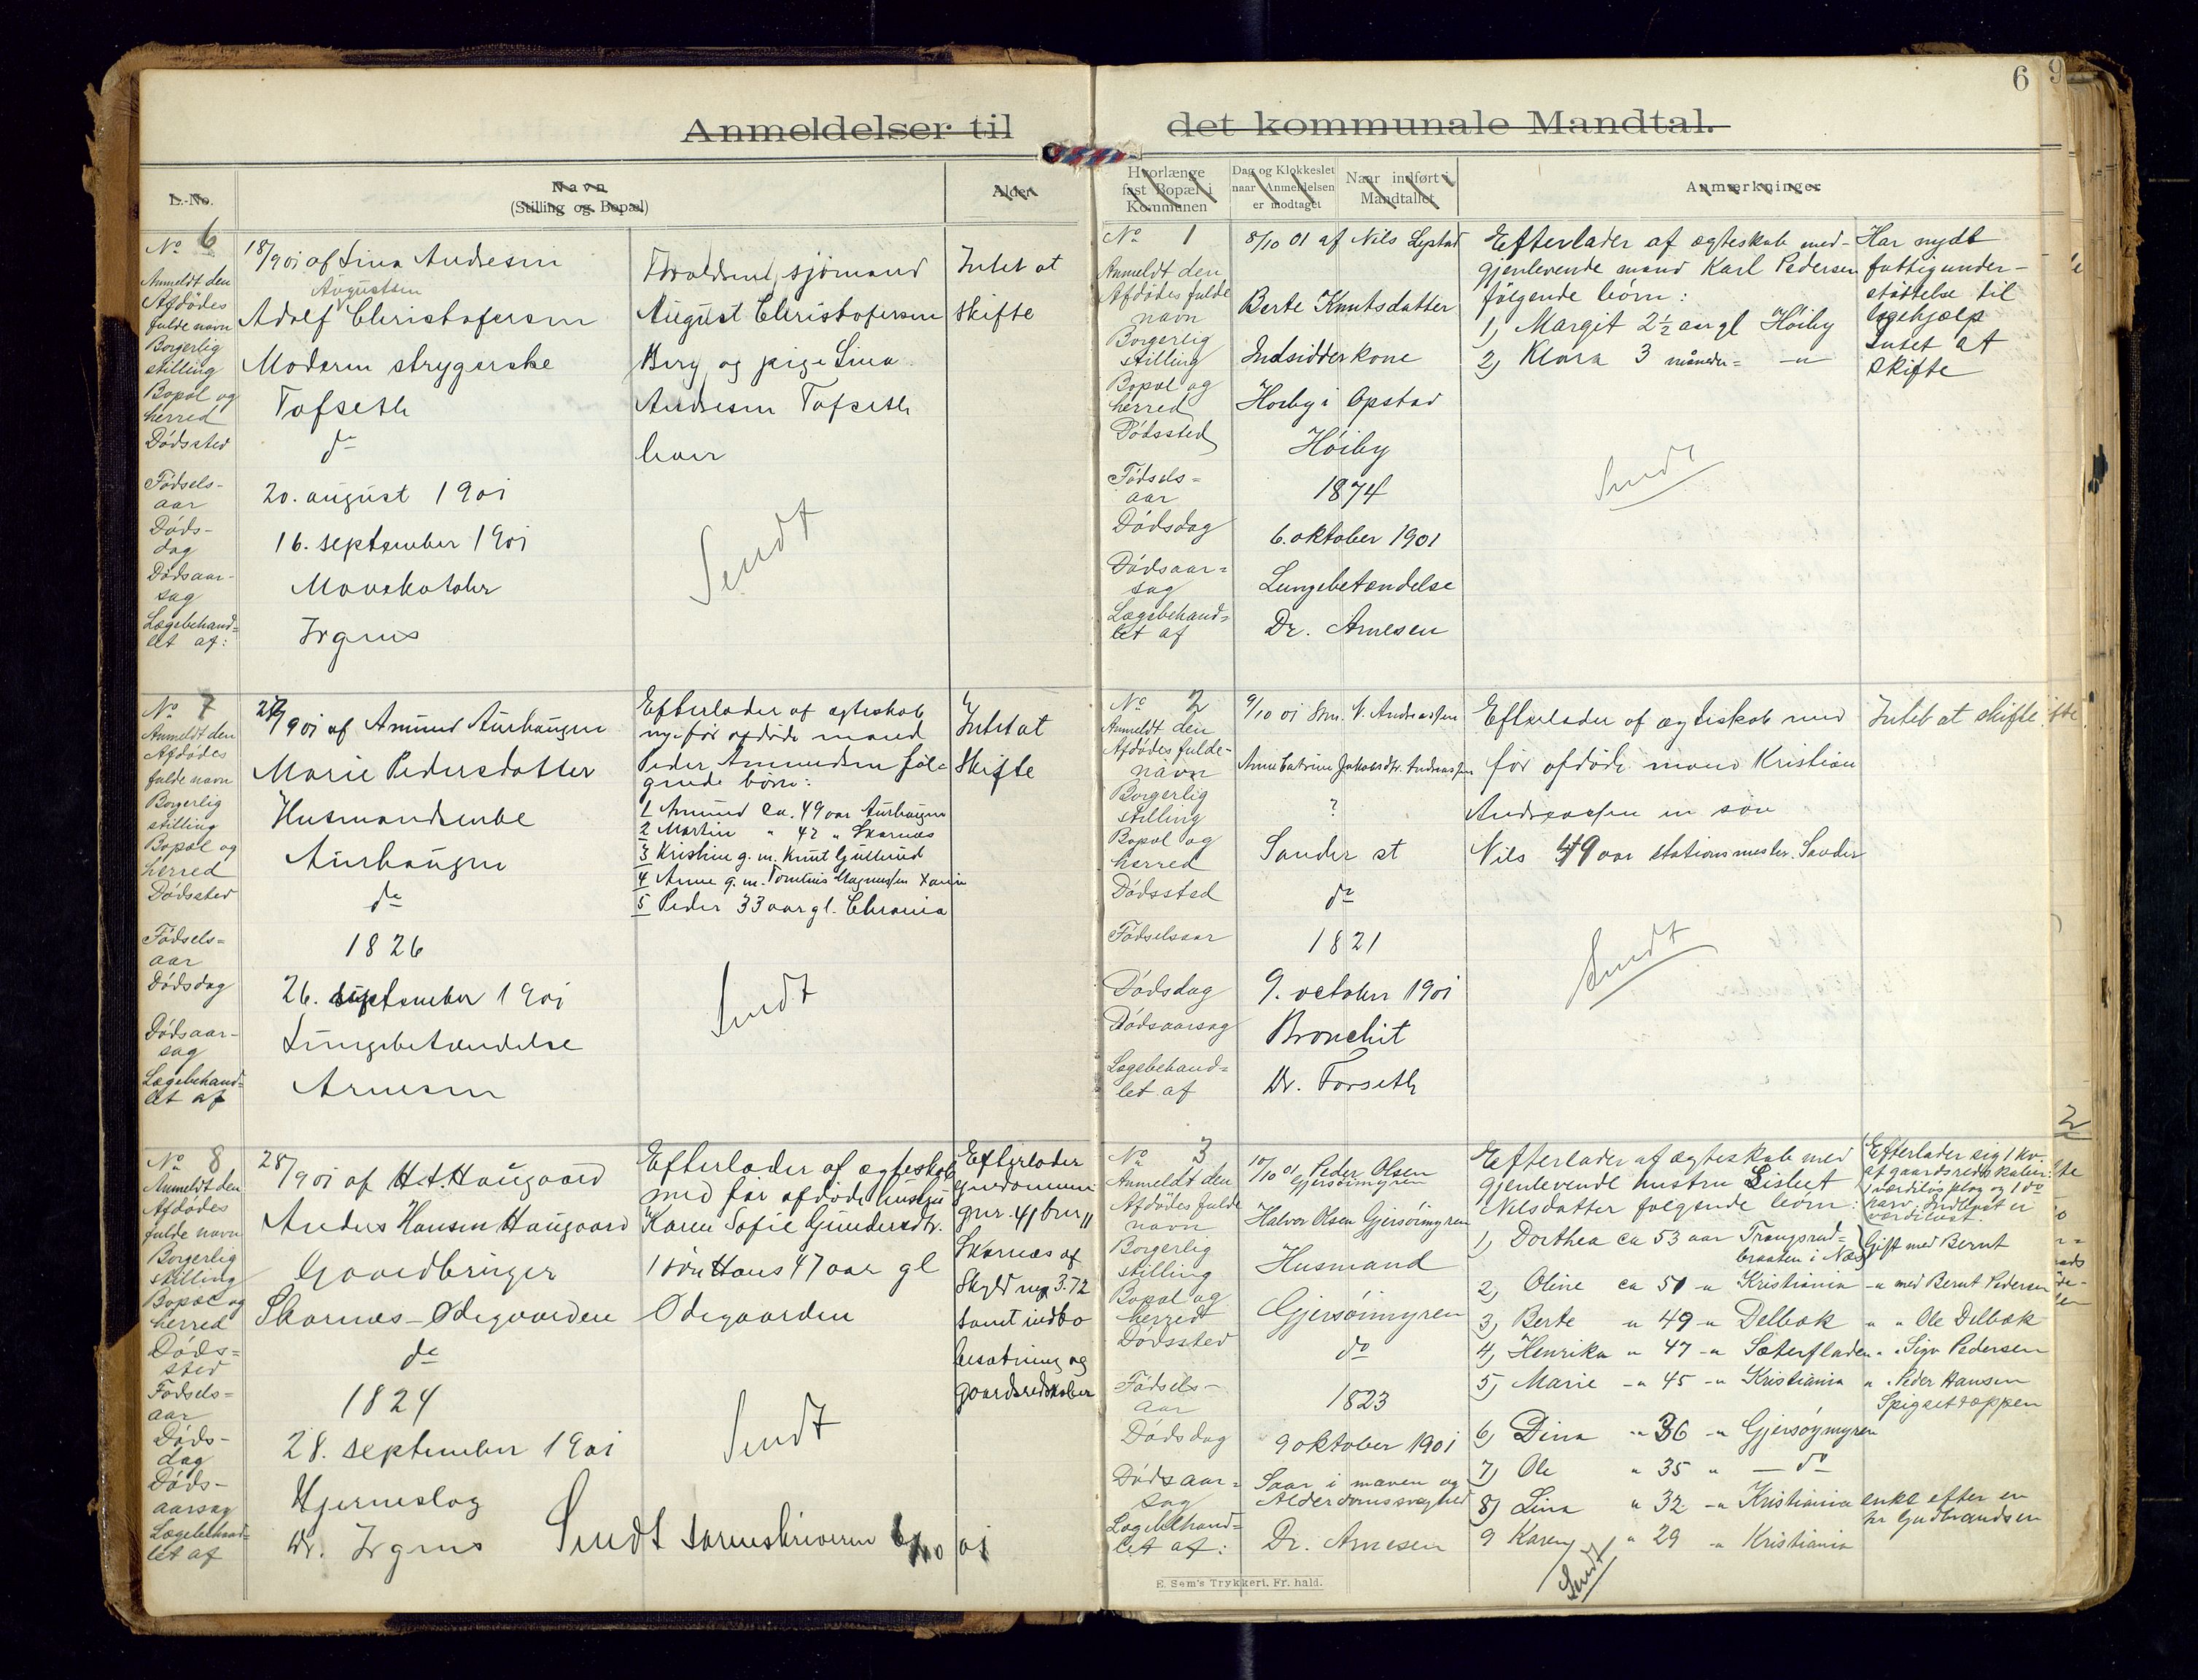 6
9
Anmeldelser til det kommunale Mandtal.
L.-No.
Navn
(Stilling og Bopæl)
Alder
Hvorlænge fast Bopæl i Kommunen
Dag og Klokkeslet naar Anmeldelsen er modtaget
Naar indført i Mandtallet
Anmærkninger
No 6
Anmeldt den
18/9 01 af Lina Andresen
Afdødes fulde navn
Augustsen
Adolf Christofersen
Borgerlig stilling
Moderen strygerske
Bopæl og herred
Tofseth
Dødssted
do
Fødselsaar
20. august 1901
Dødsdag
16. september 1901
Dødsaarsag
Mavekatahr
Lægebehandlet af:
Irgens
Forældrene sjømand
August Christofersen
Berg og pige Lina
Andresen Tofseth
lever
Intet at
skifte
Sendt
No 7
Anmeldt den
27/9 01 af Amund Aurhaugen
Afdødes fulde navn
Marie Pedersdatter
Borgerlig stilling
Husmandsenke
Bopæl og herred
Aurhaugen
Dødssted
do
Fødselsaar
1826
Dødsdag
26. september 1901
Dødsaarsag
Lungebetændelse
Lægebehandlet af
Arnesen
Efterlader af ægteskab
med før afdøde mand
Peder Amundsen føl-
gende børn:
1 Amund ca. 49 aar Aurhaugen
2 Martin " 42 " Skarnæs
3 Kristine g. m. Knut Gullerud
4 Anne g. m. Tomines Magnussen
5 Peder 33 aar gl. Chrania
Intet at
Skifte
Sendt
No 8
Anmeldt den
28/9 01 af H. A. Haugaard
Afdødes fulde navn
Anders Hansen Haugaard
Borgerlig stilling
Gaardbruger
Bopæl og herred
Skarnæs - Ødegaarden
Dødssted
do
Fødselsaar
1824
Dødsdag
28. september 1901
Dødsaarsag
Hjerneslag
Lægebehandlet af
Dr. Irgens
Efterlader af ægteskab
med før afdøde hustru
Karen Sofie Gundersdtr.
1 søn Hans 47 aar gl
Ødegaarden
Efterlader
eiendommen
gnr. 41 bnr 11
Skarnæs af
Skyld 3.72
samt indbo
besætning og
gaardsredskaber
Sendt
Sendt sorenskriveren 6/10 01
No 1
Anmeldt den
8/10 01 af Nils Lystad
Afdødes fulde navn
Berte Knutsdatter
Borgerlig stilling
Indsidderkone
Bopæl og herred
Høiby i Opstad
Dødssted
Høiby
Fødselsaar
1874
Dødsdag
6. oktober 1901
Dødsaarsag
Lungebetændelse
Lægebehandlet af
Dr. Arnesen
Efterlader af ægteskab med
gjenlevende mand Karl Pedersen
følgende børn:
1, Margit 2½ aar gl Høiby
2, Klara 3 måneder = - " -
Har nydt
fattigunder-
støttelse til
lægehjælp
Intet at
skifte
Sendt
No 2
Anmeldt den
9/10 01 Stm. N. Andreassen
Afdødes fulde-navn
Anne Catrine Jakobsdtr. Andreassen
Borgerlig stilling
?
Bopæl og herred
Sander st
Dødssted
do
Fødselsaar
1821
Dødsdag
9. october 1901
Dødsaarsag
Bronchit
Lægebehandlet af
Dr. Forseth
Efterlader af ægteskab med
før afdøde mand Kristian
Andreassen en søn
Nils 49 aar stationsmester Sander
Intet at skifte
Sendt
No 3
Anmeldt den
10/10 01 Peder Olsen
Gjersøimyren
Afdødes fulde navn
Halvor Olsen Gjersøimyren
Borgerlig stilling
Husmand
Bopæl og herred
Gjersøimyren
Dødssted
do
Fødselsaar
1823
Dødsdag
9 oktober 1901
Dødsaarsag
Saar i maven og
Alderdomssvaghed
Lægebehandlet af:
Dr. Arnesen
Efterlader af ægteskab med
gjenlevende hustru Lisbet
Nilsdatter følgende børn:
1, Dorthea ca 53 aar Trangsrud-
braaten i Næs
Gift med Bernt
2, Oline ca 51 - " Kristiania - " med Bernt Pedersen
3, Berte " 49 - " Delbæk " " Ole Delbæk
4, Henrika " 47 - " Sæterfladen " " Sigv Pedersen
5, Marie - " 45 - " Kristiania " " Peder Hansen
Spigsettoppen
6, Dina " 36 - " Gjersøymyren
7, Ole " 35 " - do
8, Lina " 32 - " Kristiania enke efter en
hr Gudbrandsen
9 Karen " 29 - " Kristiania
Efterlader sig 1 ko.
af gaardsredskaber:
1 værdiløs plog og 1 do
harv. Indboet er
værdiløst.
Sendt
2
E. Sem's Trykkeri. Fr. hald.